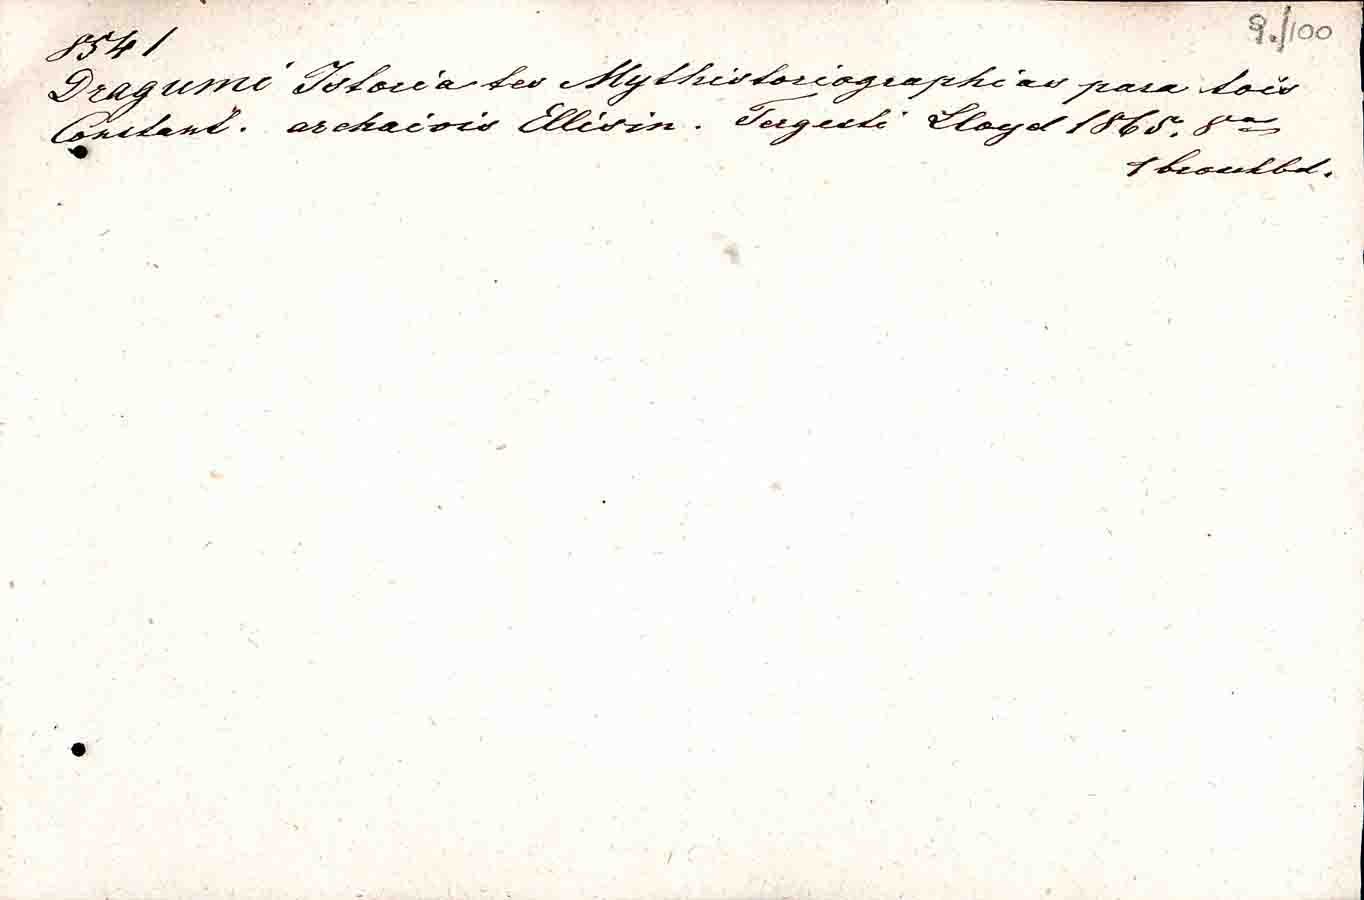 9./100
8541
Dragumi Istoria tes Mythistoriographias para tois
Constant. archaiois Ellisin. Tergesti Lloyd 1865. 8º
1 brosch bd.